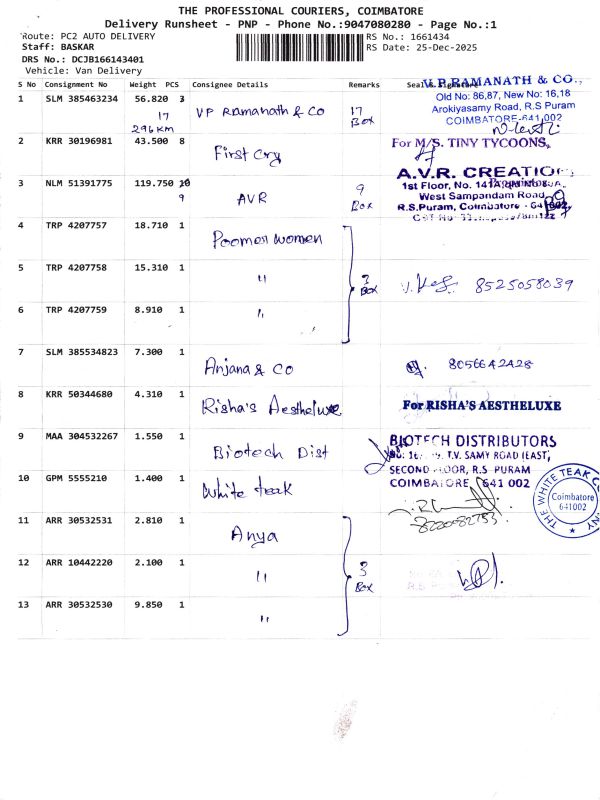 THE PROFESSIONAL COURIERS, COIMBATORE
Delivery Runsheet - PNP - Phone No.:9047080280 - Page No.:1
Route: PC2 AUTO DELIVERY
RS No.: 1661434
Staff: BASKAR
RS Date: 25-Dec-2025
DRS No.: DCJB166143401
Vehicle: Van Delivery
S No Consignment No Weight PCS Consignee Details Remarks Seal &
1 SLM 385463234 56.820 3 VP Ramanath & Co 17 Box
17
296 KM
V.P.RAMANATH & CO.,
Old No: 86,87, New No: 16,18
Arokiyasamy Road, R.S Puram
COIMBATORE-641 002
2 KRR 30196981 43.500 8 First Cry
For M/S. TINY TYCOONS,
3 NLM 51391775 119.750 AVR 9 Box
9
A.V.R. CREATION
1st Floor, No. 141A,
West Sampandam Road
R.S.Puram, Coimbatore - 641 002
4 TRP 4207757 18.710 1 Poomex women
5 TRP 4207758 15.310 1 "
3 Box
8525058039
6 TRP 4207759 8.910 1 "
7 SLM 385534823 7.300 1 Anjana & Co 8056642428
8 KRR 50344680 4.310 1 Risha's Aestheluxe
For RISHA'S AESTHELUXE
9 MAA 304532267 1.550 1 Biotech Dist
BIOTECH DISTRIBUTORS
T.V. SAMY ROAD (EAST),
SECOND FLOOR, R.S. PURAM
COIMBATORE - 641 002
10 GPM 5555210 1.400 1 White teak
THE WHITE TEAK
Coimbatore
641002
11 ARR 30532531 2.810 1 Anya
12 ARR 10442220 2.100 1 "
3 Box
13 ARR 30532530 9.850 1 "